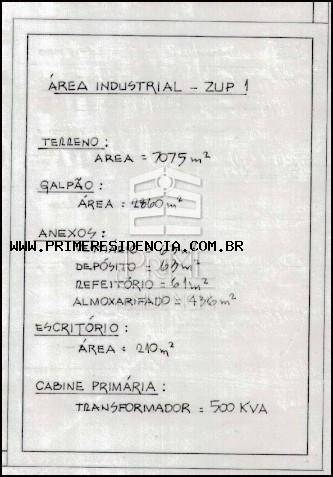 ÁREA INDUSTRIAL - ZUP 1
TERRENO:
AREA = 7075 m²
GALPÃO:
ÁREA = 2860 m²
ANEXOS:
WWW.PRIMERESIDENCIA.COM.BR
DEPÓSITO = m²
REFEITÓRIO = 61 m²
ALMOXARIFADO = 436 m²
ESCRITÓRIO:
ÁREA = 210 m²
CABINE PRIMÁRIA:
TRANSFORMADOR = 500 KVA